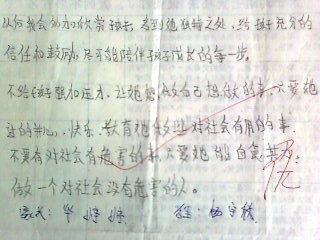 从何我会的加欣赏孩子,看到她独特之处,给孩子充分的
信任和鼓励,尽可能陪伴孩子成长的每一步。
不给孩子强加压力。让她想,做自己想做的事,只要她
过的开心,快乐。教育她做多些对社会有用的事。
不要有对社会有危害的事,只要她能自食其力,
做一个对社会没有危害的人。
家长:华婷婷